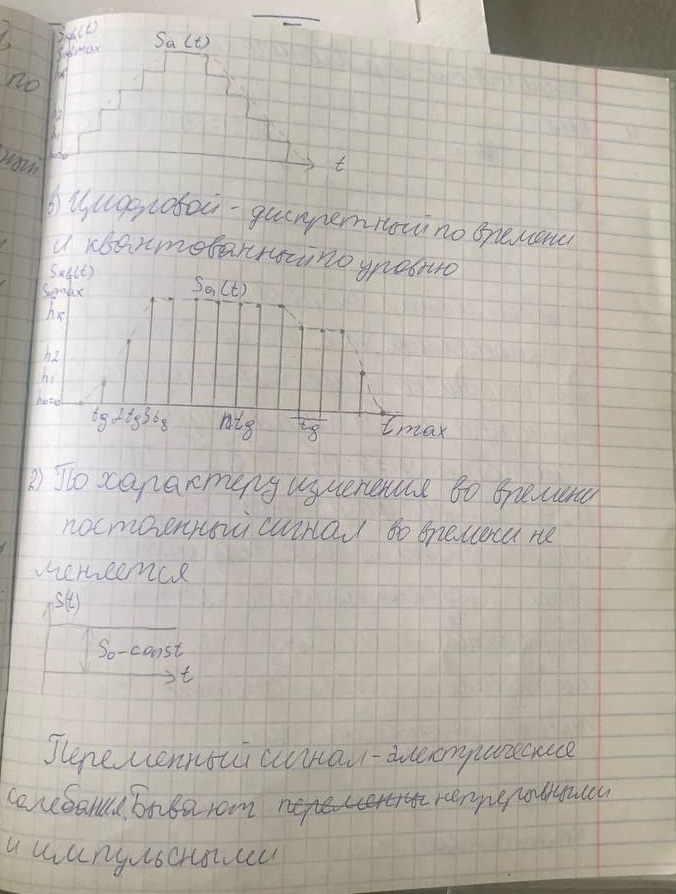 по
Sкв(t)
Sквmax
hк
Sa(t)
h2
h1
h0=0
t
в) Цифровой - дискретный по времени
и квантованный по уровню
Sкв(t)
Smax
Sa(t)
hк
h2
h1
h0=0
tg 2tg 3tg ntg tg tmax
2) По характеру изменения во времени
постоянный сигнал во времени не
меняется
S(t)
S0-const
t
Переменный сигнал - электрические
колебания. Бывают переменны непрерывными
и импульсными